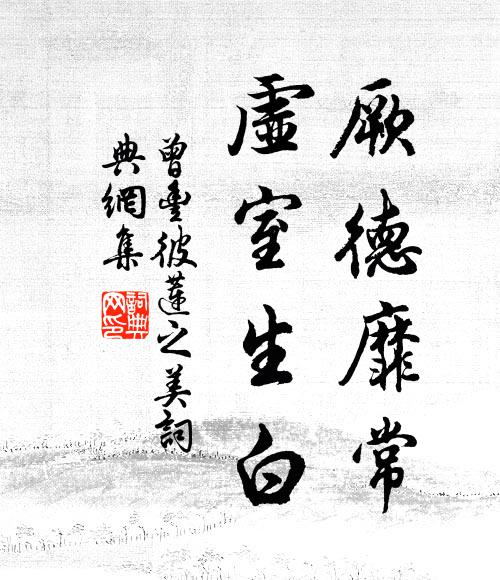 厥德靡常
虛室生白
曾豐彼蓮之美詞
典網集
詞典
网印